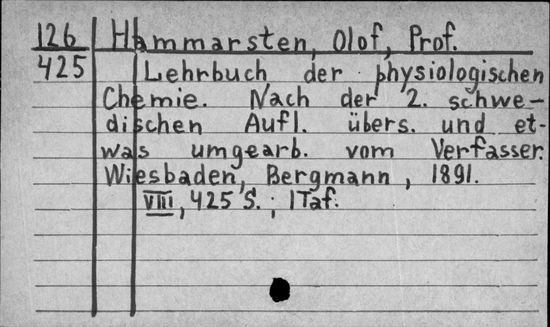 126 Hammarsten, Olof, Prof.
425 Lehrbuch der physiologischen
Chemie. Nach der 2. schwe-
dischen Aufl. übers. und et-
was umgearb. vom Verfasser.
Wiesbaden, Bergmann, 1891.
VIII, 425 S.; 1 Taf.